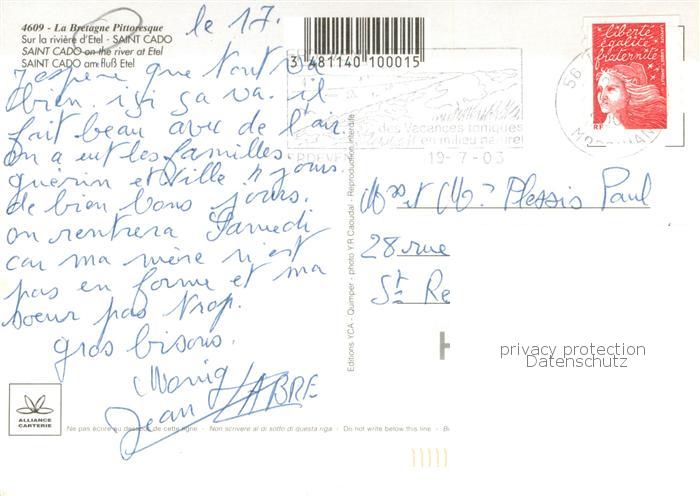 4609 - La Bretagne Pittoresque
Sur la rivière d'Etel - SAINT CADO
SAINT CADO on the river at Etel
SAINT CADO am fluß Etel
le 17.
j'espère que tout va
bien. i§i ça va. il
fait beau avec de l'air.
on a eut les familles
guérin et ville 4 jours.
de bien bons jours.
on rentrera Samedi
car ma mère n'est
pas en forme et ma
soeur pas trop.
gros bisous.
Monig
Jean LABRE
3 481140 100015
ERDEVEN
des Vacances toniques
en milieu naturel
19-7-03
56
MORBIHAN
liberté
égalité
fraternité
RF
Mr et Mme Plessis Paul
28 rue
St Re
Editions YCA - Quimper - photo Y.R Caoudal - Reproduction interdite
ALLIANCE
CARTERIE
Ne pas écrire au dessous de cette ligne - Non scrivere al di sotto di questa riga - Do not write below this line - Bi
privacy protection
Datenschutz